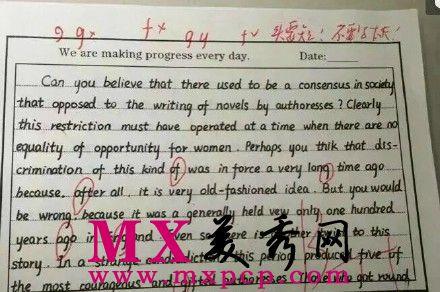 9 9x fx 9y fv
We are making progress every day. Date:
Can you believe that there used to be a consensus in society
that opposed to the writing of novels by authoresses? Clearly
this restriction must have operated at a time when there are no
equality of opportunity for women. Perhaps you thik that dis-
crimination of this kind of was in force a very long time ago
because, after all, it is very old-fashioned idea. But you would
be wrong, because it was a generally held vew only one hundred
years ago in England
MX美秀网
story. In a strange this period produced five of
www.mxpcp.com
the most courageous and gifted authoresses. They got round